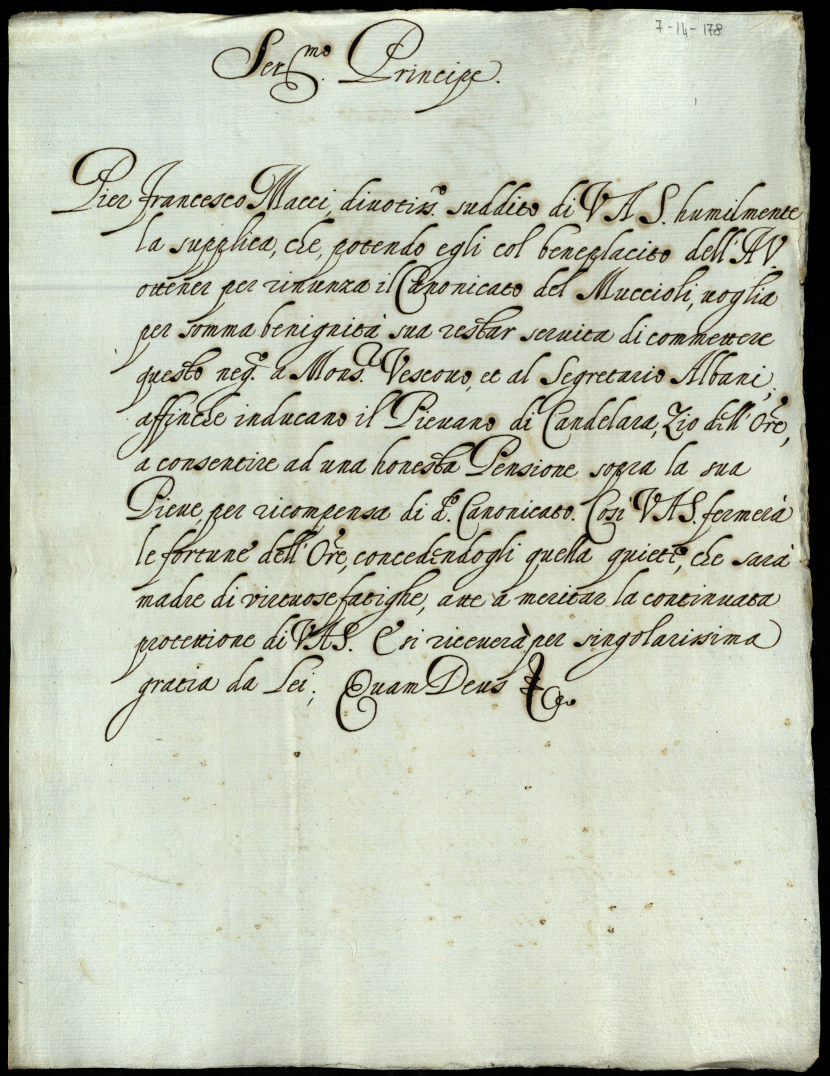 7-14-178
Ser.mo Principe.
Pier Francesco Macci, divotis.o suddito di V A S. humilmente
la supplica, che, potendo egli col beneplacito dell'A V
ottener per rinunza il Canonicato del Muccioli, voglia
per somma benignità sua restar servita di commettere
questo neg.o a Mons.r Vescovo, et al Segretario Albani,
affinche inducano il Pievano di Candelara, Zio dell'Ore,
a consentire ad una honesta Pensione sopra la sua
Pieve, per ricompensa di d.o Canonicato. Così V A S. fermerà
le fortune dell'Ore, concedendogli quella quiete, che sarà
madre di virtuose fatighe, atte a meritar la continuata
protettione di V A S. E si riceverà per singolarissima
gratia da Lei; Quam Deus &c.